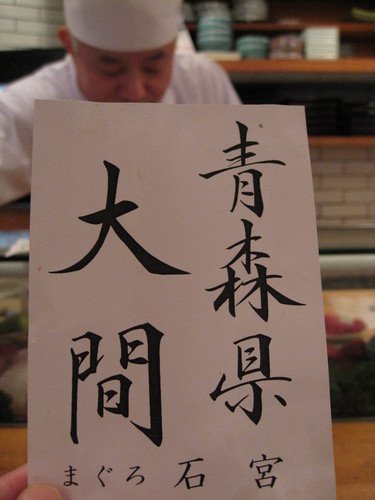 青森県
大間
まぐろ 石宮